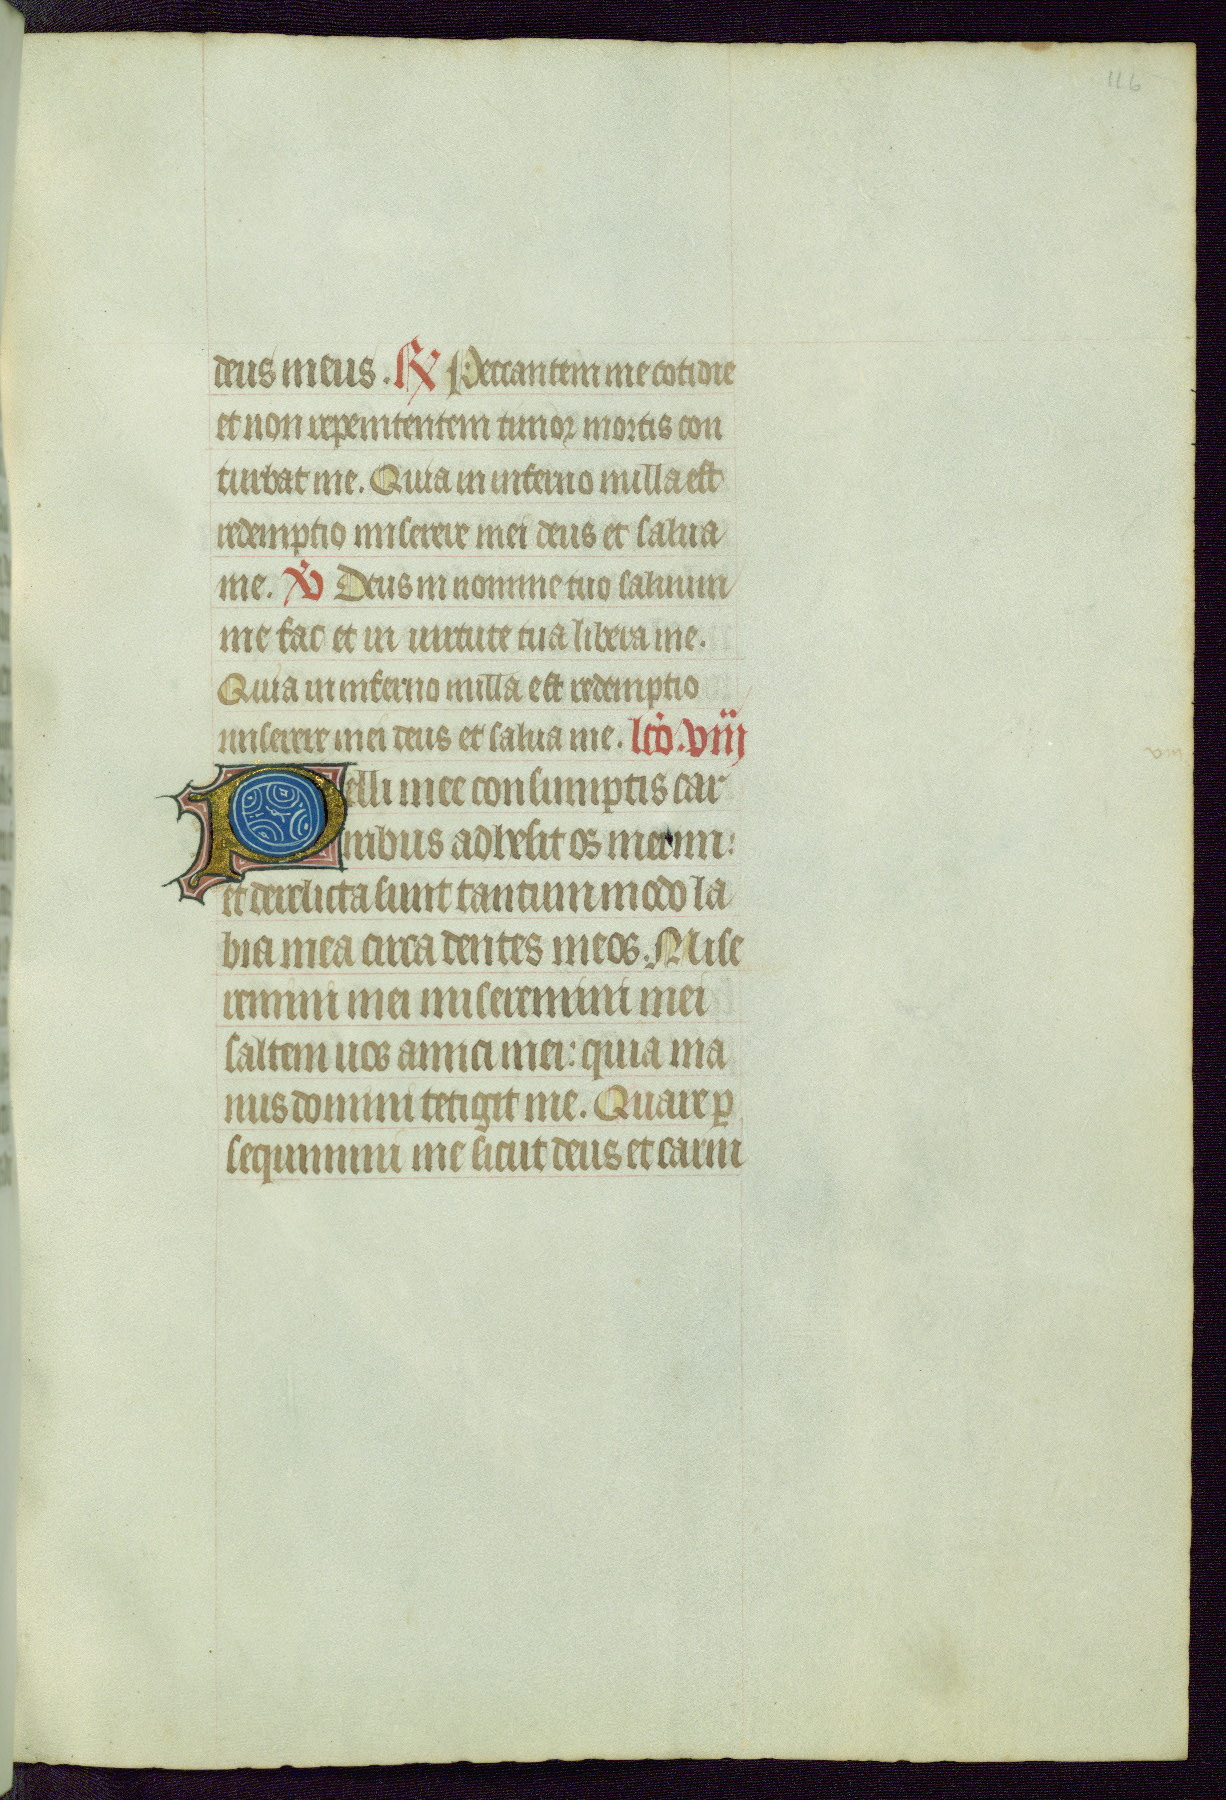 116
deus meus. R̸ Peccantem me cotidie
et non repenitentem timor mortis con
turbat me. Quia in inferno nulla est
redemptio miserere mei deus et salua
me. V̸ Deus in nomine tuo saluum
me fac et in uirtute tua libera me.
Quia in inferno nulla est redemptio
miserere mei deus et salua me. lcō. viij
Pelli mee consumptis car
nibus adhesit os meum:
et derelicta sunt tantummodo la
bia mea circa dentes meos. Mise
remini mei miseremini mei
saltem uos amici mei: quia ma
nus domini tetigit me. Quare ꝑ
sequimini me sicut deus et carni